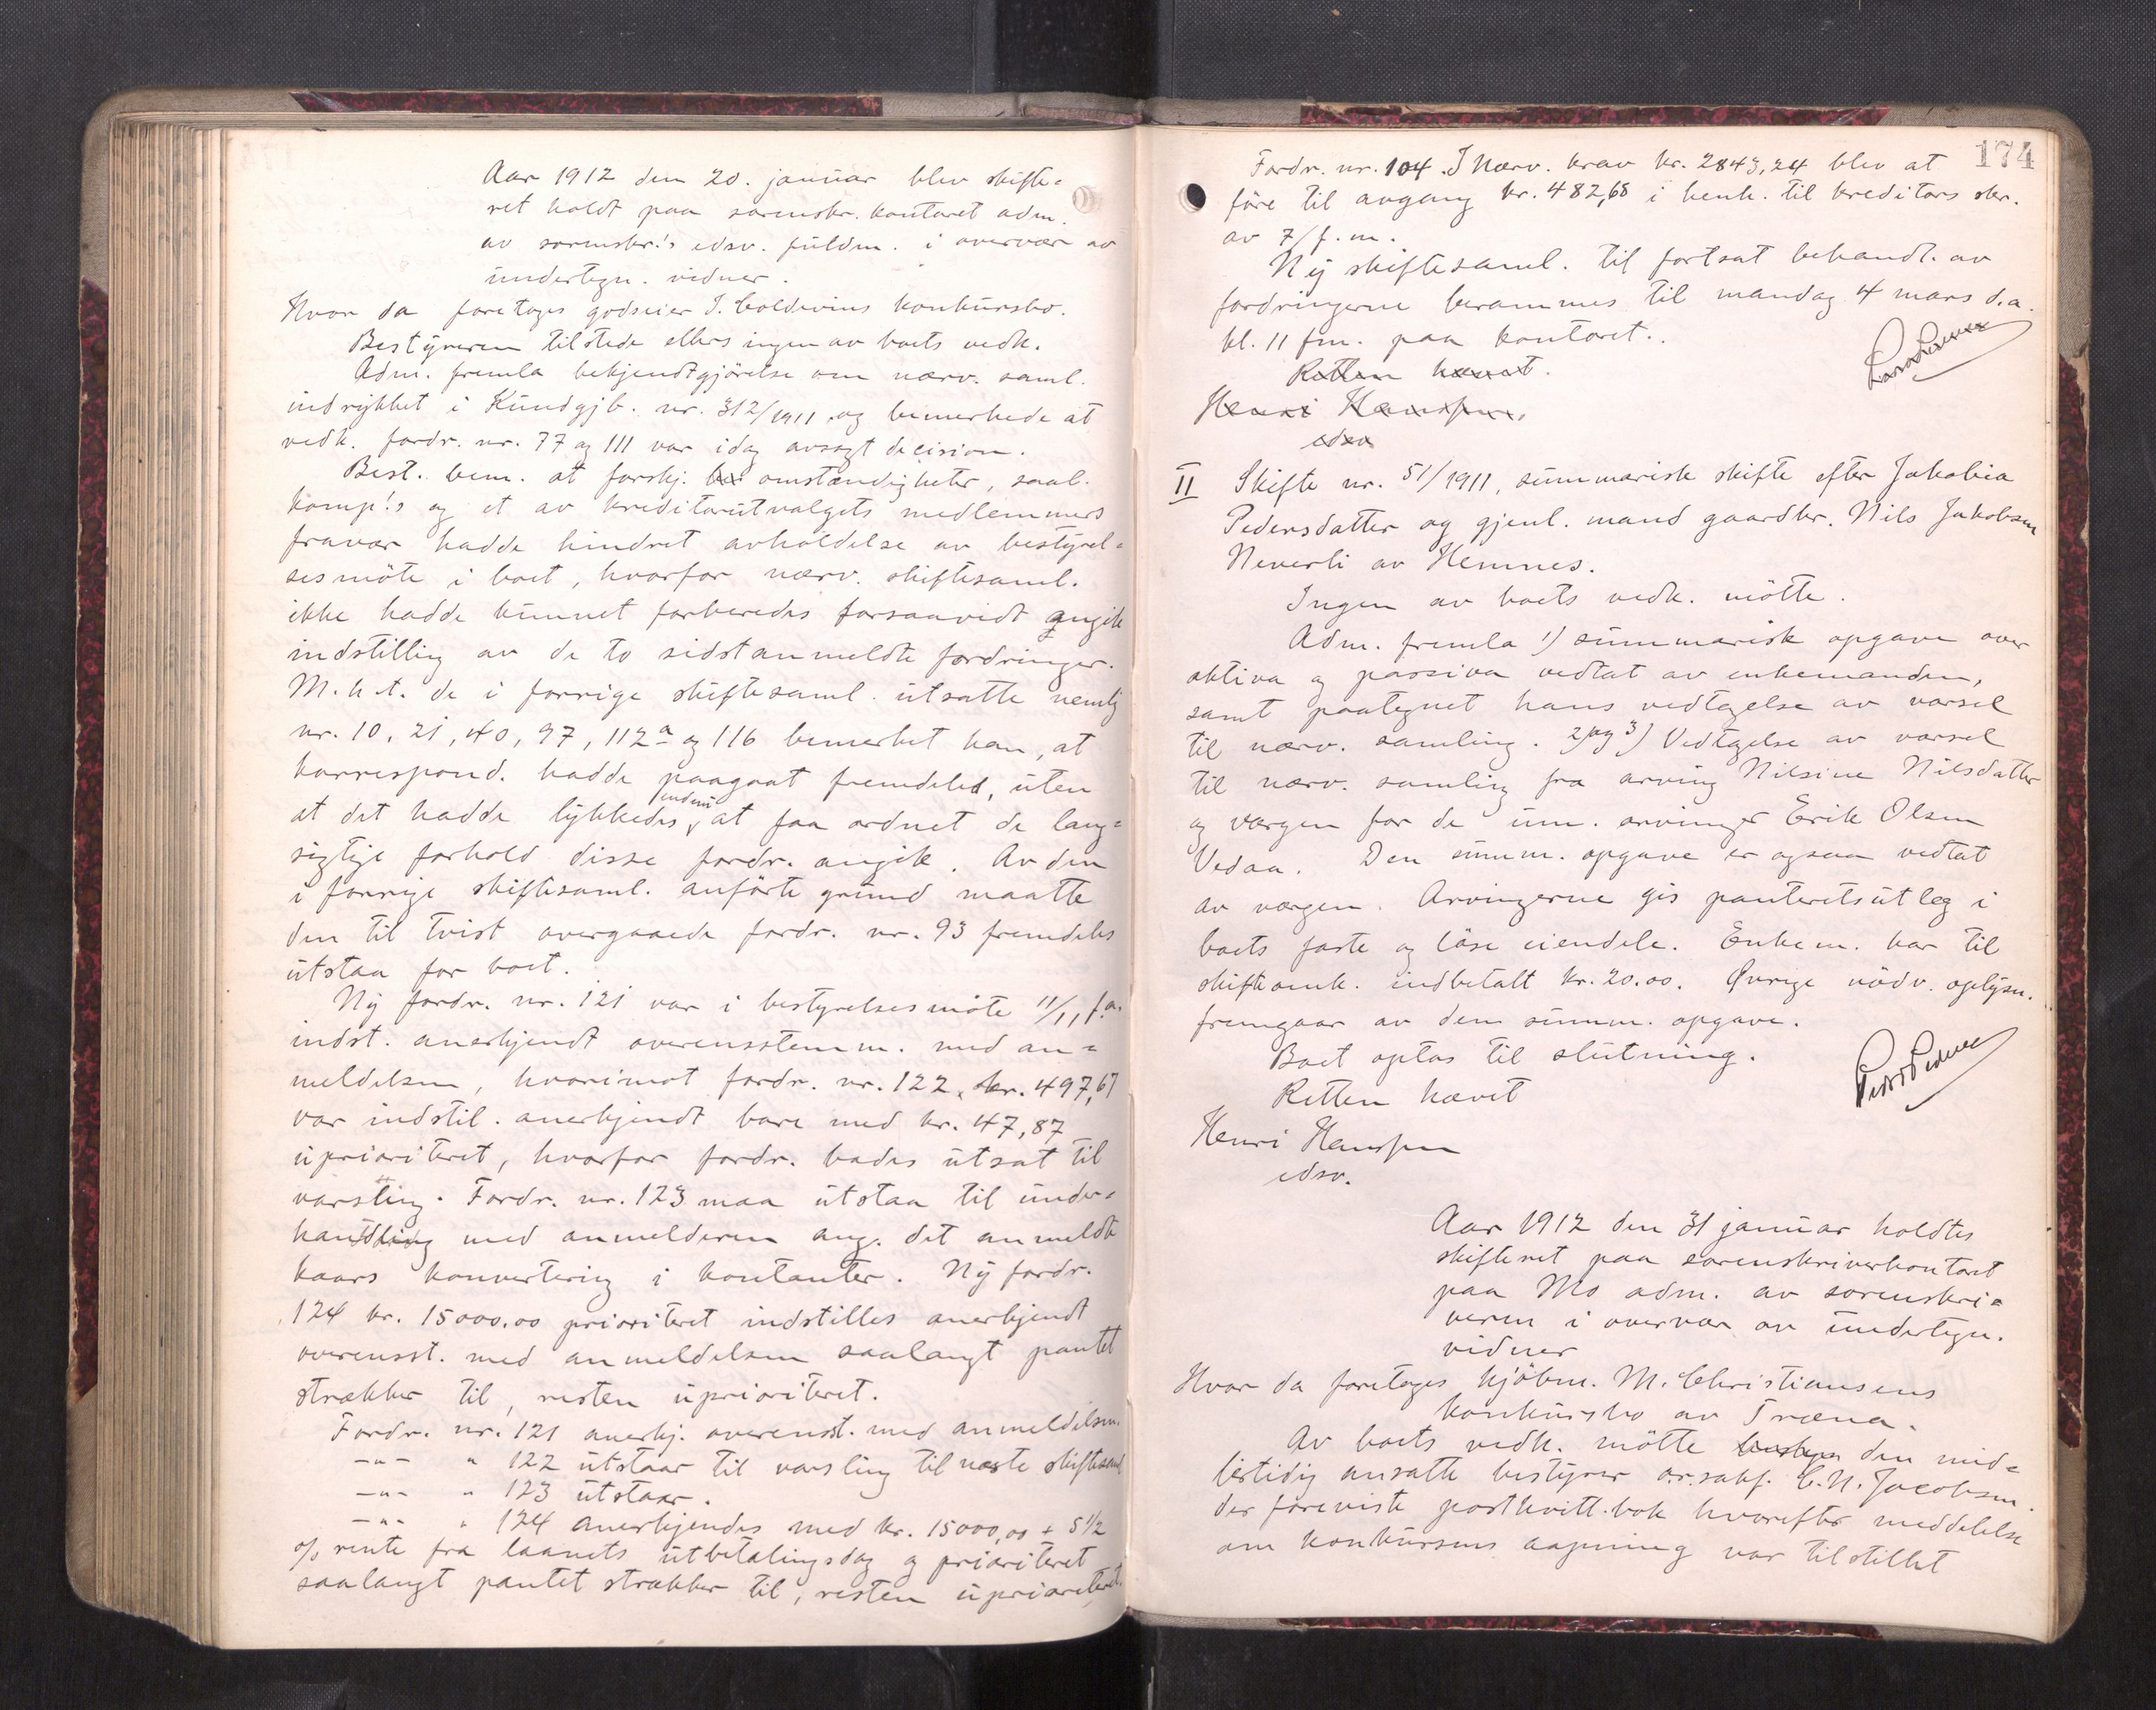 Aar 1912 den 20. januar blev skifte=
ret holdt paa sorenskr. kontoret adm.
av sorenskr.'s edsv. fuldm. i overvær av
undertegn. vidner.
Hvor da foretoges godseier J. Coldevins konkursbo.
Bestyreren tilstede ellers ingen av boets vedk.
Adm. fremla bekjendtgjörelse om nærv. saml.
indrykket i Kundgjb. nr. 312/1911 og bemerkede at
vedk. fordr. nr. 77 og 111 var idag avsagt decision.
Best. bem. at forskj. omstændigheter, saal.
komp!s og et av kreditorutvalgets medlemmers
fravær hadde hindret avholdelse av bestyrel=
sesmöte i boet, hvorfor nærv. skiftesaml.
ikke hadde kunnet forberedes forsaavidt angik
indstilling av de to sidstanmeldte fordringer.
M.h.t. de i forrige skiftesaml. utsatte nemlig
nr. 10, 21, 40, 97, 112a og 116 bemerket han, at
korrespond. hadde paagaat fremdeles, uten
at det hadde lykkedes endnu at faa ordnet de lang=
sigtige forhold disse fordr. angik. Av den
i forrige skiftesaml. anförte grund maatte
den til tvist overgaaede fordr. nr. 93 fremdeles
utstaa for boet.
Ny fordr. nr. 121 var i bestyrelsesmöte 11/11 f.a.
indst. anerkjendt overensstemm. med an=
meldelsen, hvorimot fordr. nr. 122, kr. 497,67
var indstil. anerkjendt bare med kr. 47,87
uprioriteret, hvorfor fordr. bades utsat til
varsling. Fordr. nr. 123 maa utstaa til under=
handling med anmelderen ang. det anmeldte
kaars konvertering i kontanter. Ny fordr.
124 kr. 15000.00 prioriteret indstilles anerkjendt
overensst. med anmeldelsen saalangt pantet
strækker til, resten uprioriteret.
Fordr. nr. 121 anerkj. overensst. med anmeldelsen.
-"- " 122 utstaar til varsling til næste skiftesaml.
-"- " 123 utstaar.
-"- " 124 anerkjendes med kr. 15000,00 + 5 1/2
% rente fra laanets utbetalingsdag og prioriteret
saalangt pantet strækker til, resten uprioriteret.
174
Fordr. nr. 104. I nærv. krav kr. 2843,24 blev at
före til avgang kr. 482,68 i henh. til kreditors skr.
av 7/ f.m.
Ny skiftesaml. til fortsat behandl. av
fordringerne berammes til mandag 4 mars d.a.
kl. 11 fm. paa kontoret.
Retten hævet.
Henri Hanssen,
edsv
II Skifte nr. 51/1911, summarisk skifte efter Jakobia
Pedersdatter og gjenl. mand gaardbr. Nils Jakobsen
Neverli av Hemnes.
Ingen av boets vedk. mötte.
Adm. fremla 1) summarisk opgave over
aktiva og passiva vedtat av enkemanden,
samt paategnet hans vedtagelse av varsel
til nærv. samling. 2) og 3) Vedtagelse av varsel
til nærv. samling fra arving Nilsine Nilsdatter
og værgen for de um. arvinger Erik Olsen
Vedaa. Den summ. opgave er ogsaa vedtat
av værgen. Arvingerne gis panteretsutlæg i
boets faste og löse eiendele. Enkem. har til
skifteomk. indbetalt kr. 20.00. Øvrige nödv. oplysn.
fremgaar av den summ. opgave.
Boet optas til slutning.
Retten hævet
Henri Hanssen
edsv.
Aar 1912 den 31 januar holdtes
skifteret paa sorenskriverkontoret
paa Mo adm. av sorenskri=
veren i overvær av undertegn.
vidner
Hvor da foretoges kjöbm. M. Christiansens
konkursbo av Træna.
Av boets vedk. mötte den mid=
lertidig ansatte bestyrer o.r.sakf. C.N. Jacobsen.
der foreviste postkvitt.bok hvorefter meddelelse
om konkursens aapning var tilstillet